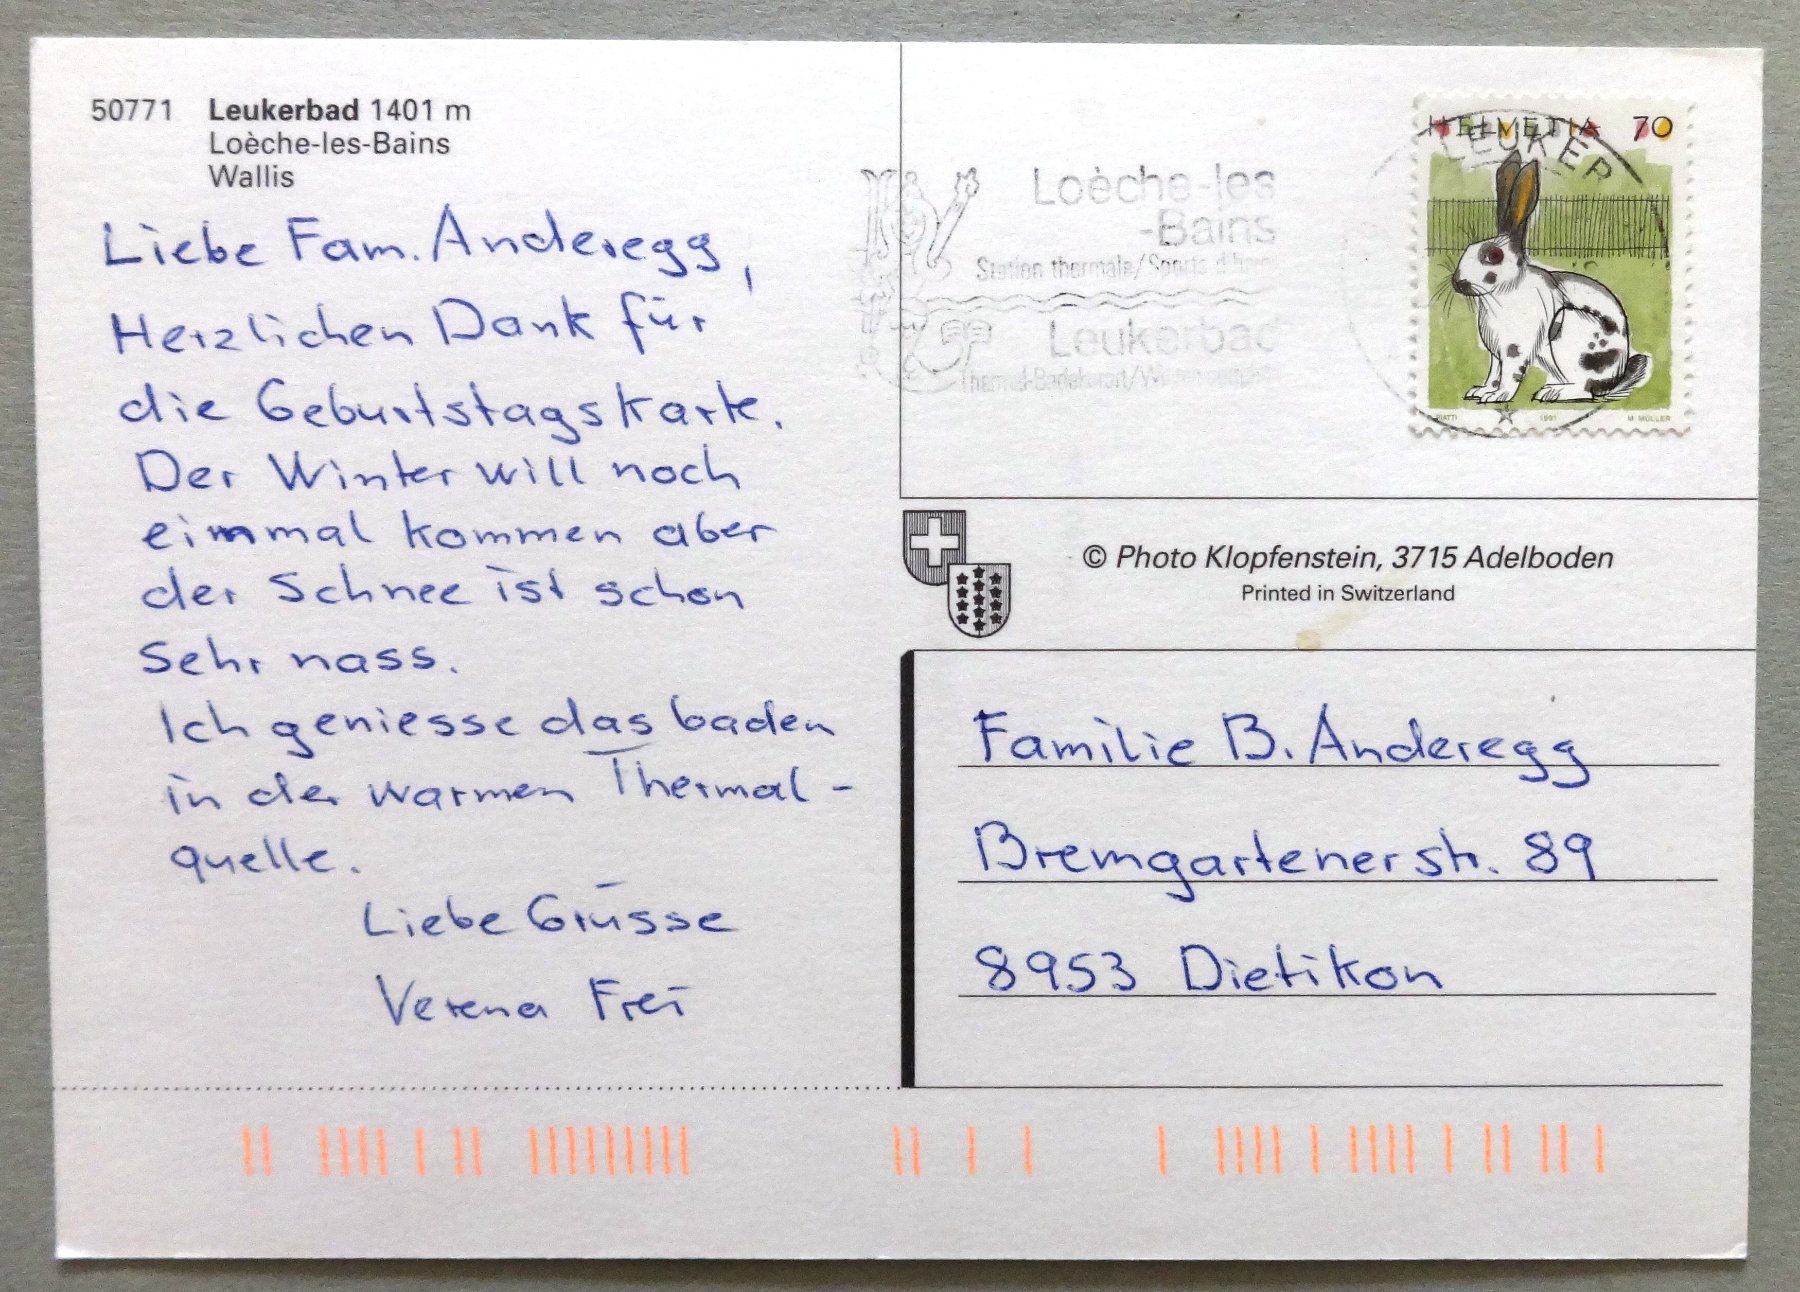 50771 Leukerbad 1401 m
Loèche-les-Bains
Wallis
Liebe Fam. Anderegg,
Herzlichen Dank für
die Geburtstagskarte.
Der Winter will noch
einmal kommen aber
der Schnee ist schon
sehr nass.
Ich geniesse das baden
in der warmen Thermal-
quelle.
Liebe Grüsse
Verena Frei
Loèche-les
-Bains
Station thermale/Sports d'hiver
Leukerbad
HELVETIA 70
LEUKER
PIATTI 1991 M. MÜLLER
© Photo Klopfenstein, 3715 Adelboden
Printed in Switzerland
Familie B. Anderegg
Bremgartenerstr. 89
8953 Dietikon